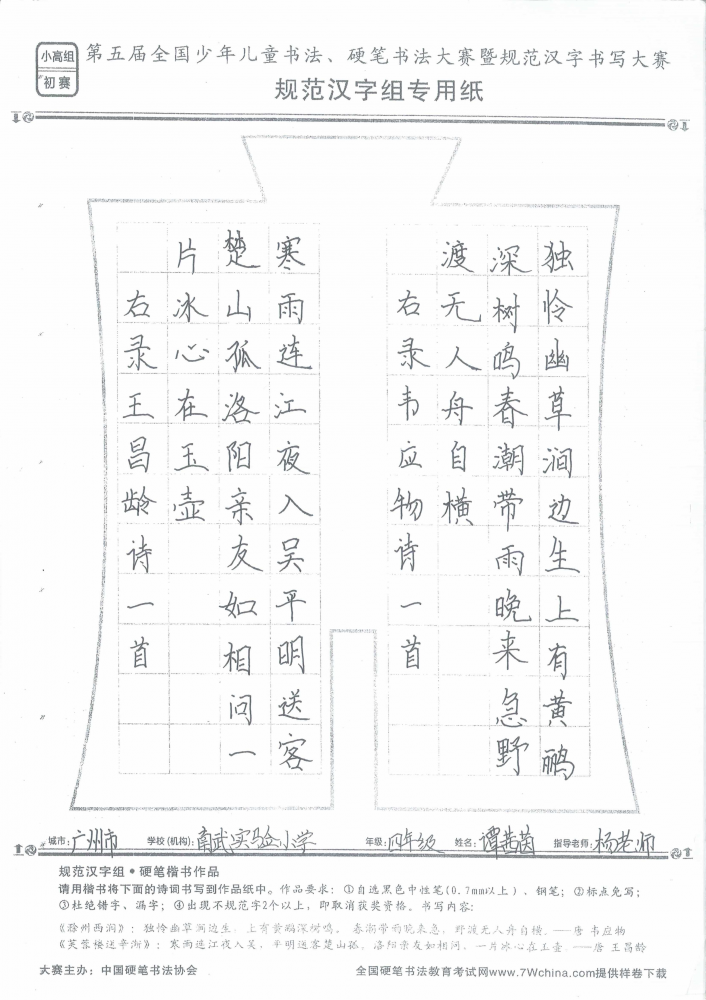 小高组
初赛
第五届全国少年儿童书法、硬笔书法大赛暨规范汉字书写大赛
规范汉字组专用纸
独怜幽草涧边生上有黄鹂
深树鸣春潮带雨晚来急野
渡无人舟自横
右录韦应物诗一首
寒雨连江夜入吴平明送客
楚山孤洛阳亲友如相问一
片冰心在玉壶
右录王昌龄诗一首
城市：广州市 学校(机构)：南武实验小学 年级：四年级 姓名：谭茜茵 指导老师：杨老师
规范汉字组•硬笔楷书作品
请用楷书将下面的诗词书写到作品纸中。作品要求：①自选黑色中性笔(0.7mm以上)、钢笔；②标点免写；
③杜绝错字、漏字；④出现不规范字2个以上，即取消获奖资格。书写内容：
《滁州西涧》：独怜幽草涧边生，上有黄鹂深树鸣。 春潮带雨晚来急，野渡无人舟自横。——唐 韦应物
《芙蓉楼送辛渐》：寒雨连江夜入吴，平明送客楚山孤。洛阳亲友如相问，一片冰心在玉壶。——唐 王昌龄
大赛主办：中国硬笔书法协会 全国硬笔书法教育考试网www.7Wchina.com提供样卷下载